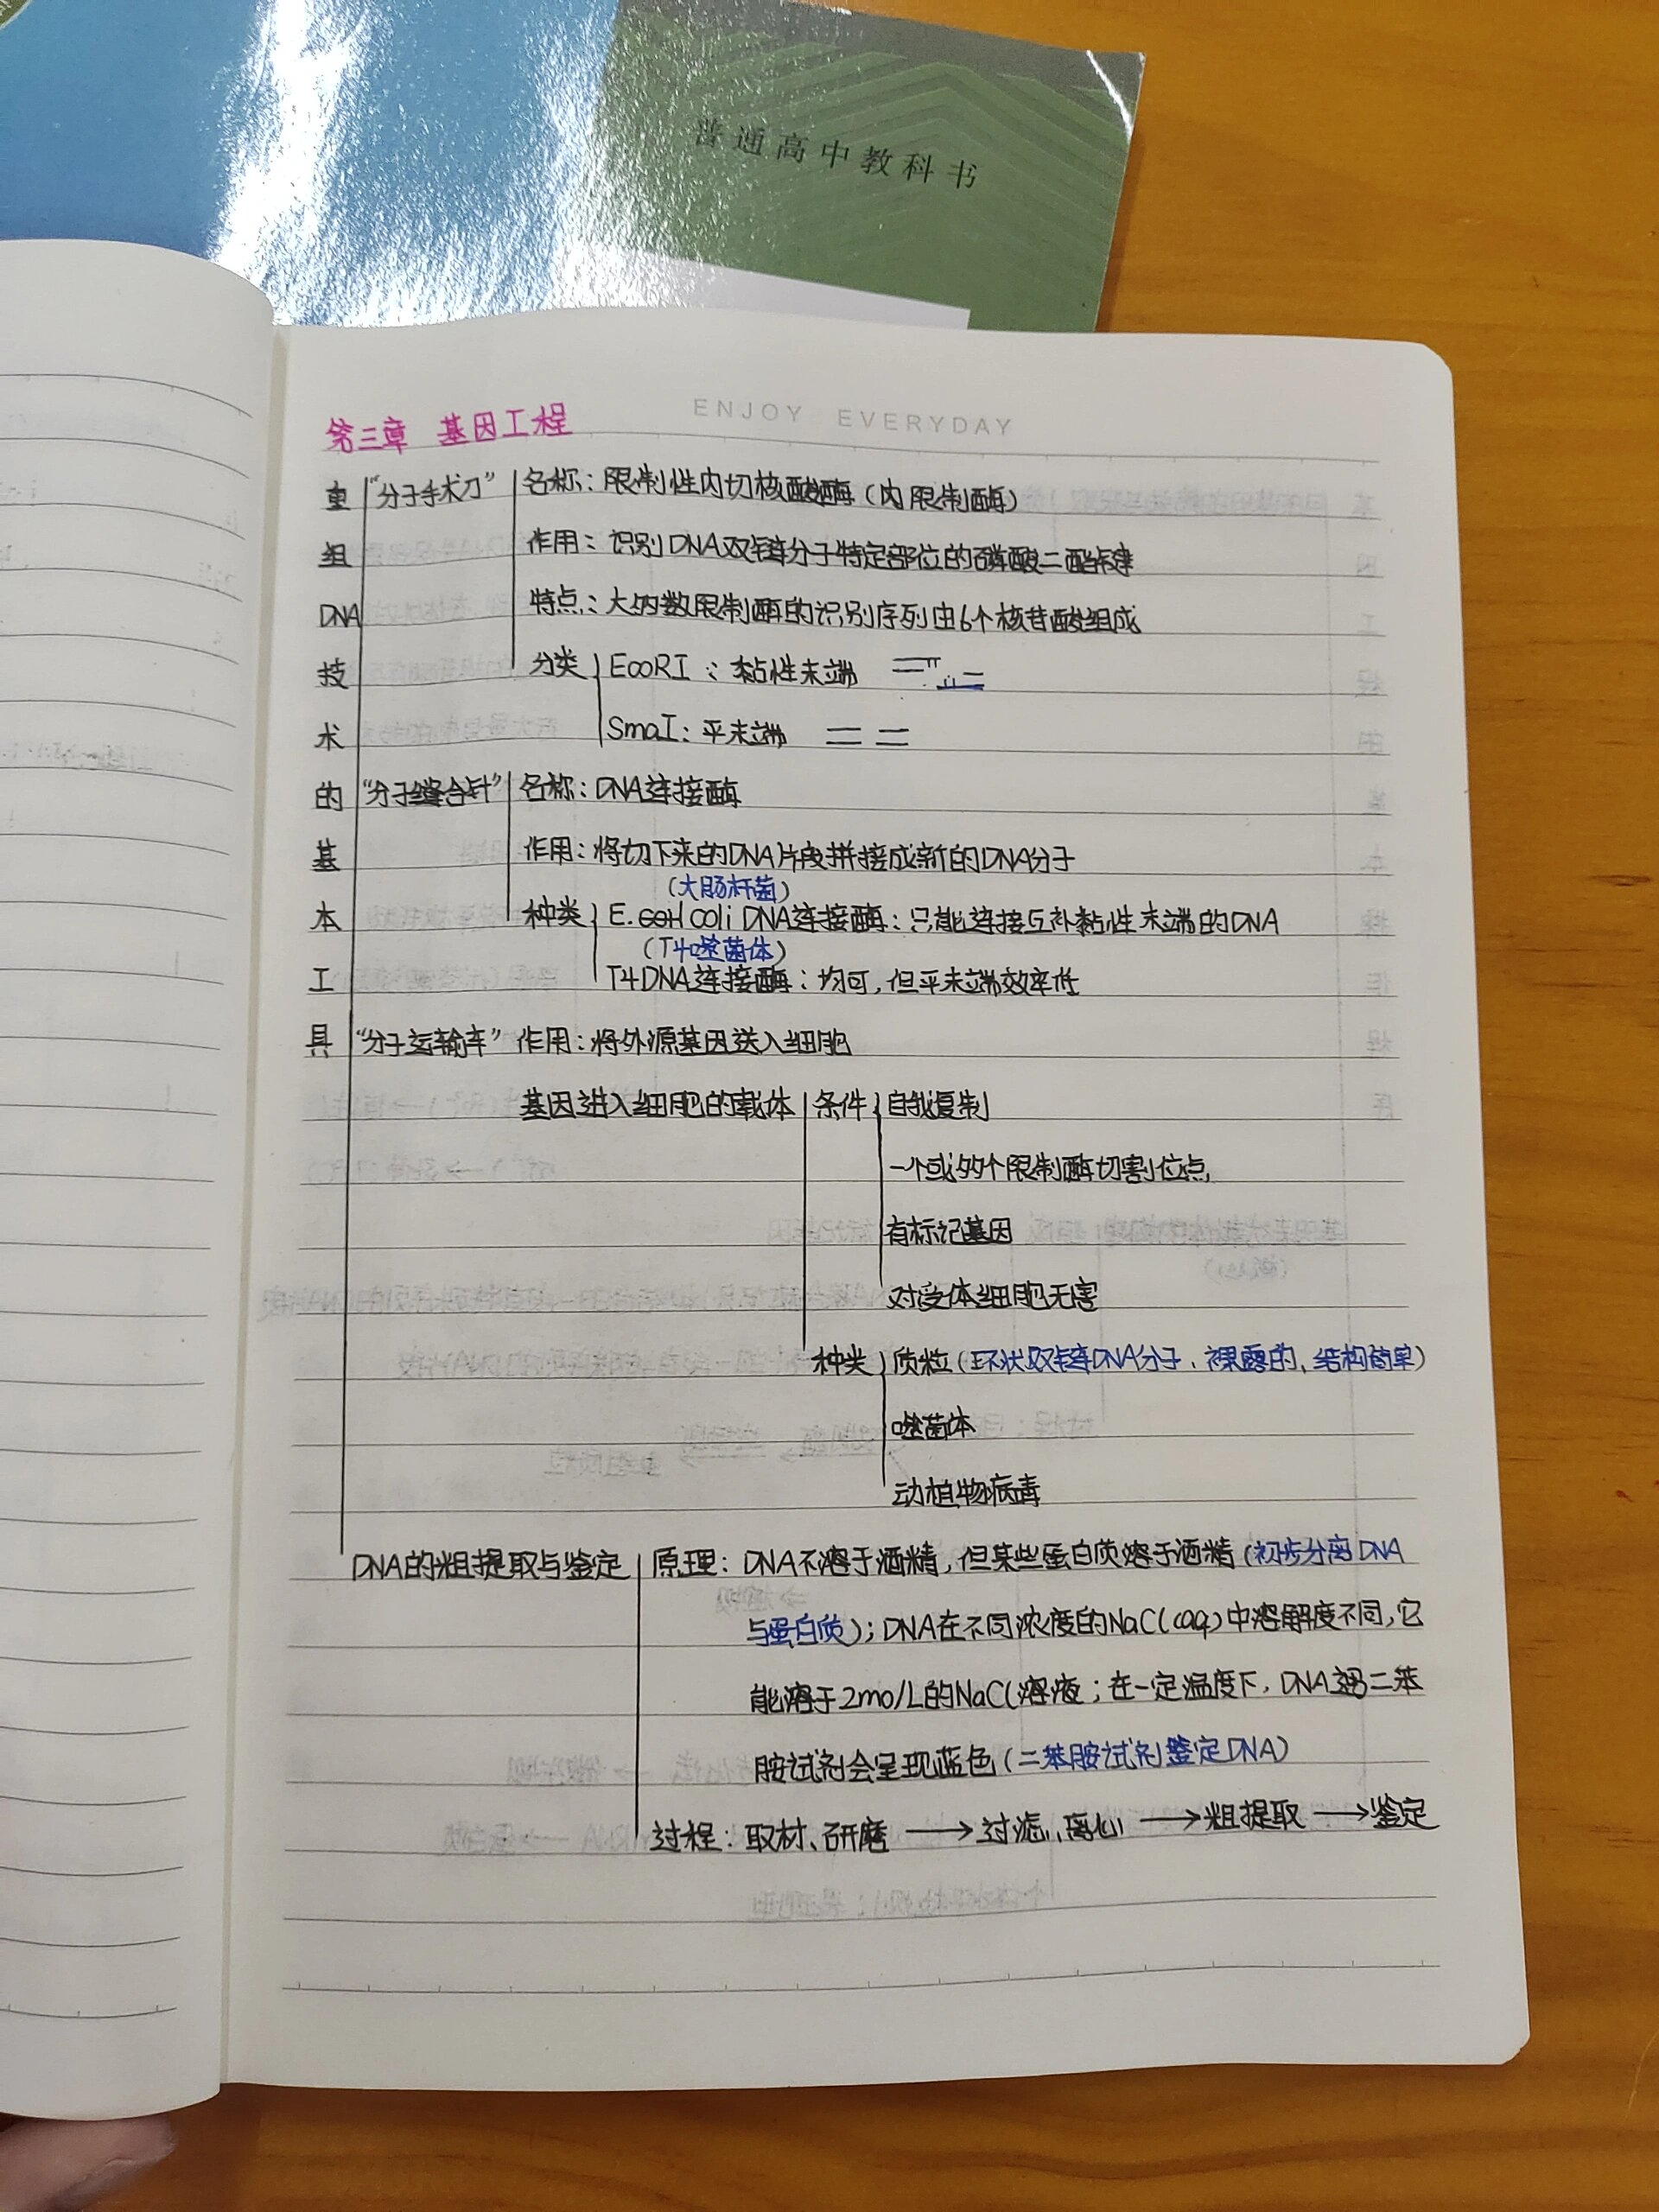 普通高中教科书
ENJOY EVERYDAY
第三章 基因工程
重组DNA技术的基本工具
“分子手术刀” 名称：限制性内切核酸酶（内限制酶）
作用：识别DNA双链分子特定部位的磷酸二酯键
特点：大多数限制酶的识别序列由6个核苷酸组成
分类 EcoRI：黏性末端
SmaI：平末端
“分子缝合针” 名称：DNA连接酶
作用：将切下来的DNA片段拼接成新的DNA分子
（大肠杆菌）
种类 E. coli DNA连接酶：只能连接互补黏性末端的DNA
（T4噬菌体）
T4DNA连接酶：均可，但平末端效率低
“分子运输车” 作用：将外源基因送入细胞
基因进入细胞的载体 条件 自我复制
一个或多个限制酶切割位点
有标记基因
对受体细胞无害
种类 质粒（环状双链DNA分子、裸露的、结构简单）
噬菌体
动植物病毒
DNA的粗提取与鉴定 原理：DNA不溶于酒精，但某些蛋白质溶于酒精（初步分离DNA
与蛋白质）；DNA在不同浓度的NaCl(aq)中溶解度不同，它
能溶于2mol/L的NaCl溶液；在一定温度下，DNA遇二苯
胺试剂会呈现蓝色（二苯胺试剂鉴定DNA）
过程：取材、研磨 → 过滤、离心 → 粗提取 → 鉴定